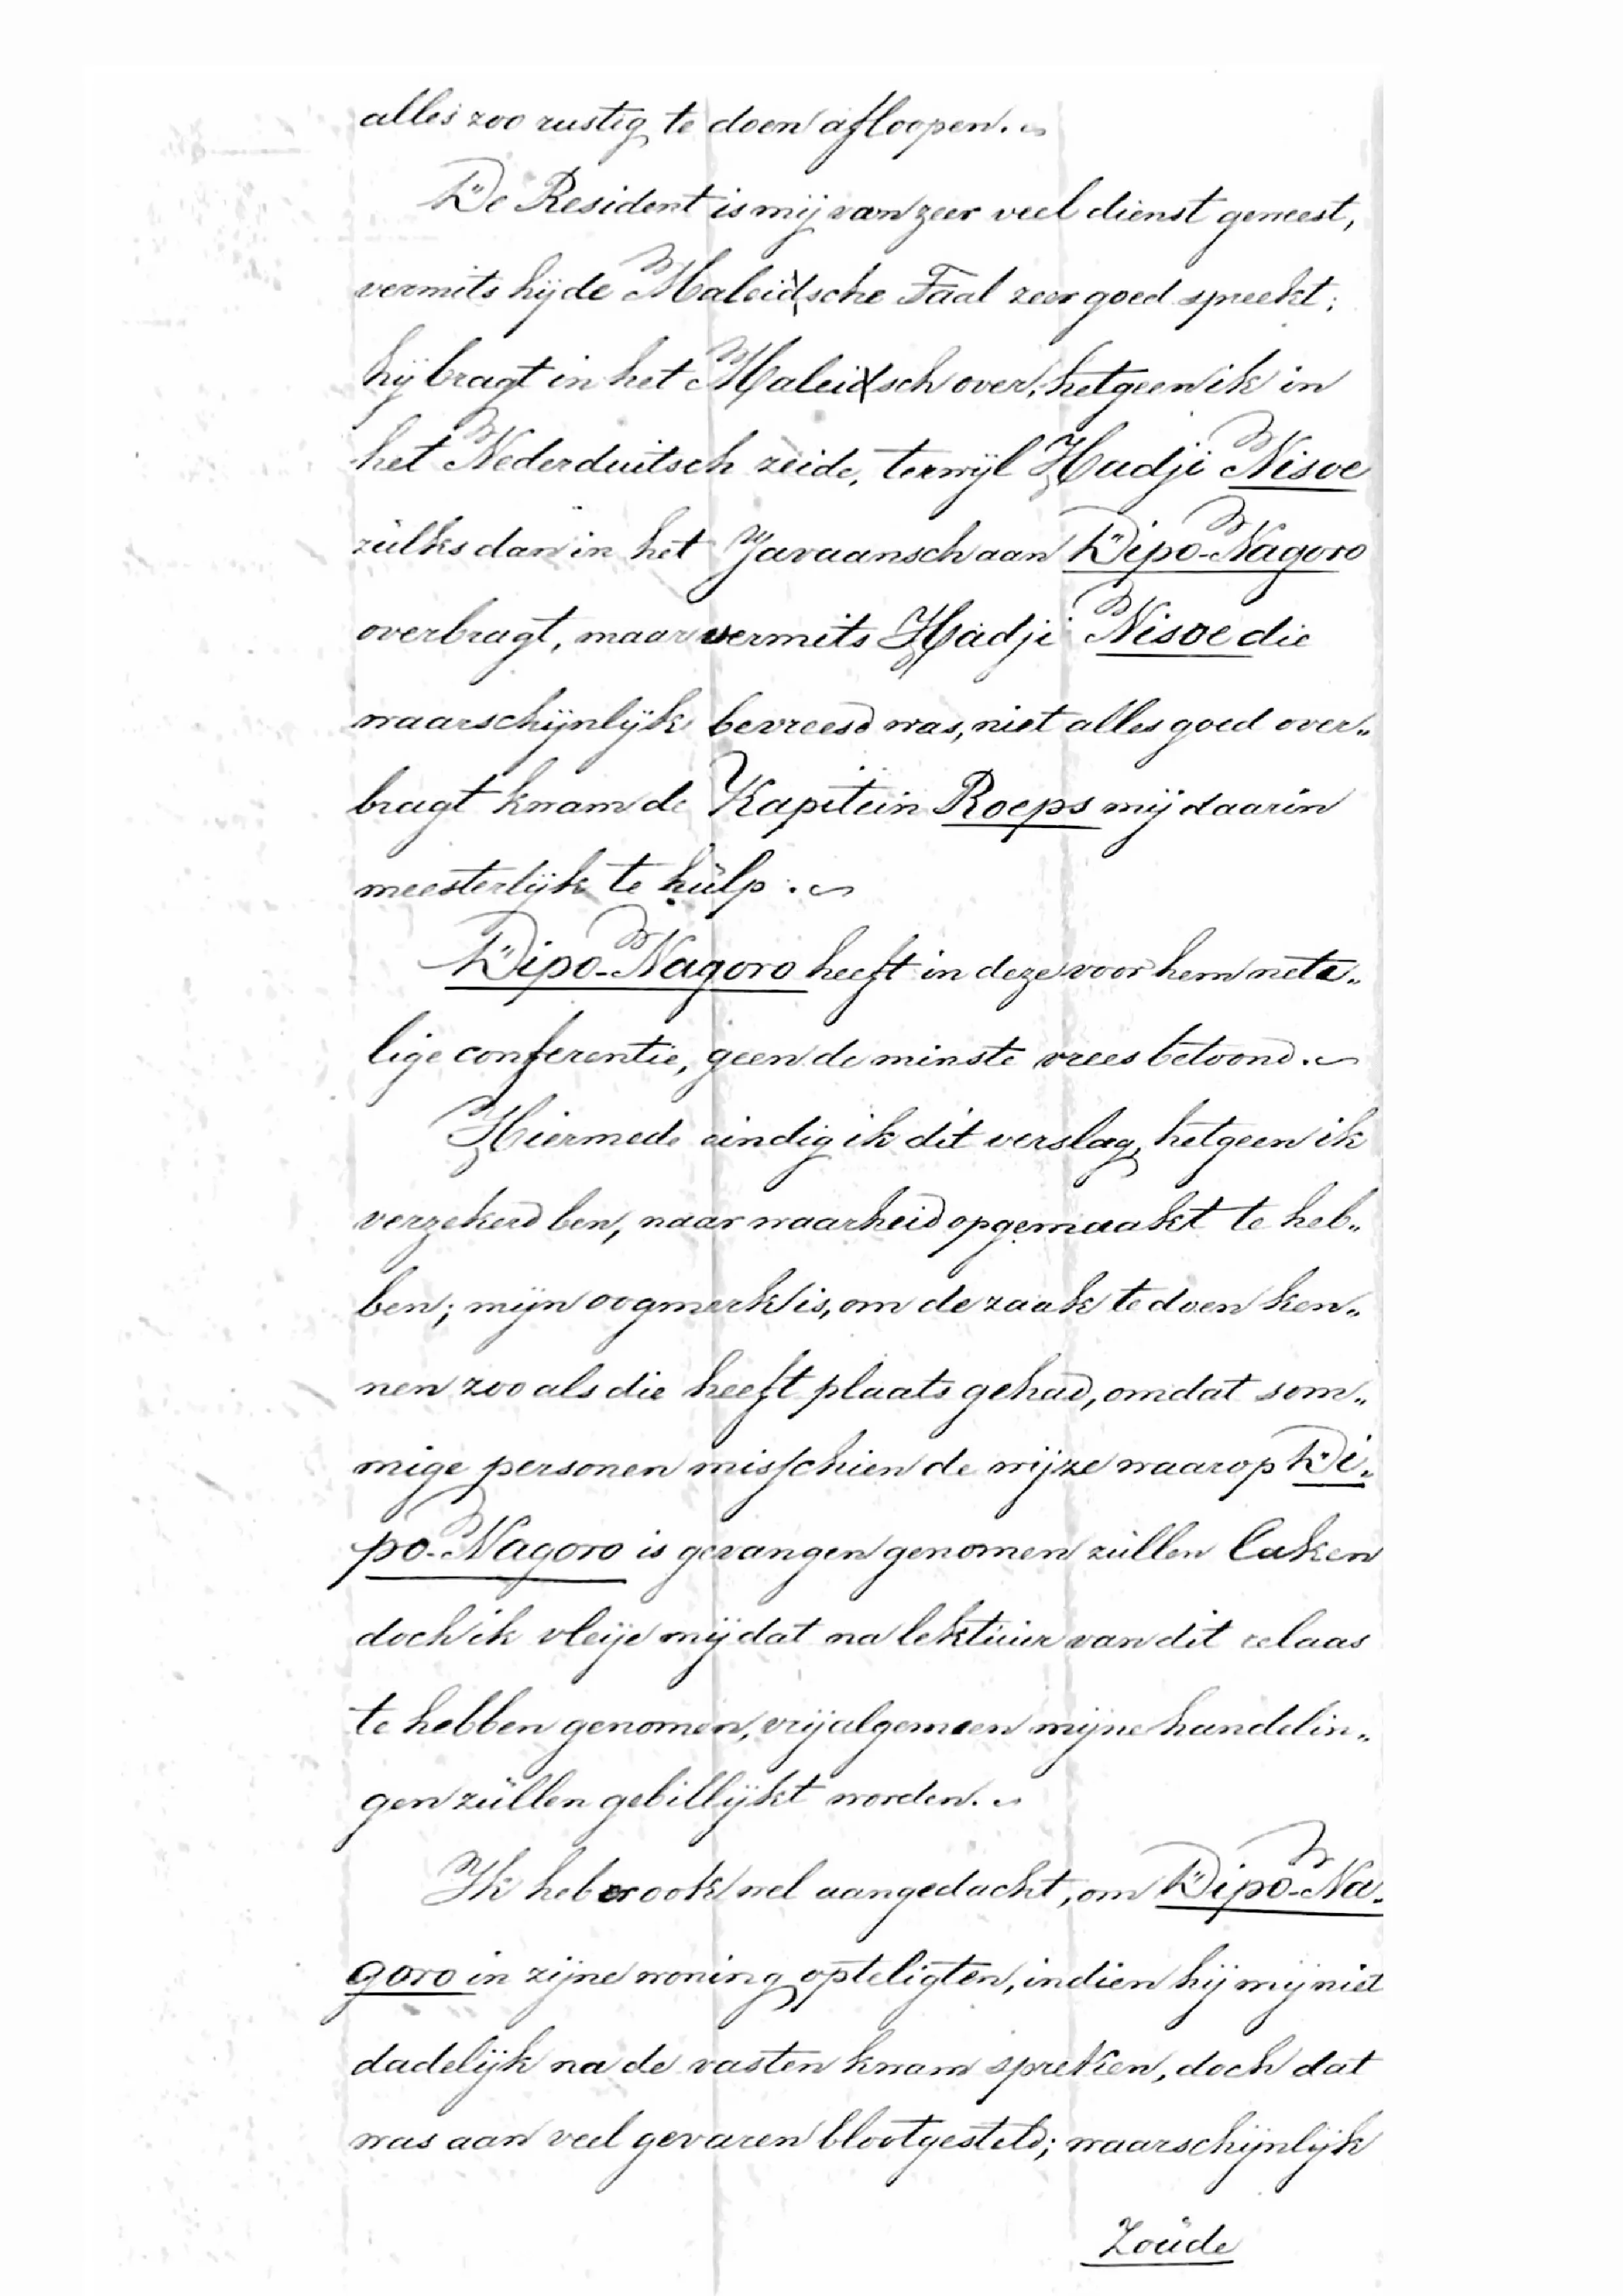 alles zoo rustig te doen afloopen.
De Resident is mij van zeer veel dienst geweest,
vermits hij de Maleidsche Taal zeer goed spreekt;
hij bragt in het Maleidsch over, hetgeen ik in
het Nederduitsch zeide, terwijl Hadji Nisoe
zulks dan in het Javaansch aan Dipo-Nagoro
overbragt, maar vermits Hadji Nisoe die
waarschijnlijk bevreesd was, niet alles goed over„
bragt kwam de Kapitein Roeps mij daarin
meesterlijk te hulp.
Dipo-Nagoro heeft in deze voor hem nete„
lige conferentie, geen de minste vrees betoond.
Hiermede eindig ik dit verslag, hetgeen ik
verzekerd ben, naar waarheid opgemaakt te heb„
ben; mijn oogmerk is, om de zaak te doen ken„
nen zoo als die heeft plaats gehad, omdat som„
mige personen misschien de wijze waarop Di„
po-Nagoro is gevangen genomen zullen laken
doch ik vleije mij dat na lektuur van dit relaas
te hebben genomen, vrij algemeen mijne handelin„
gen zullen gebillijkt worden.
Ik heb er ook wel aangedacht, om Dipo-Na„
goro in zijne woning opteligten, indien hij mij niet
dadelijk na de vasten kwam spreken, doch dat
was aan veel gevaren blootgesteld; waarschijnlijk
Zoude